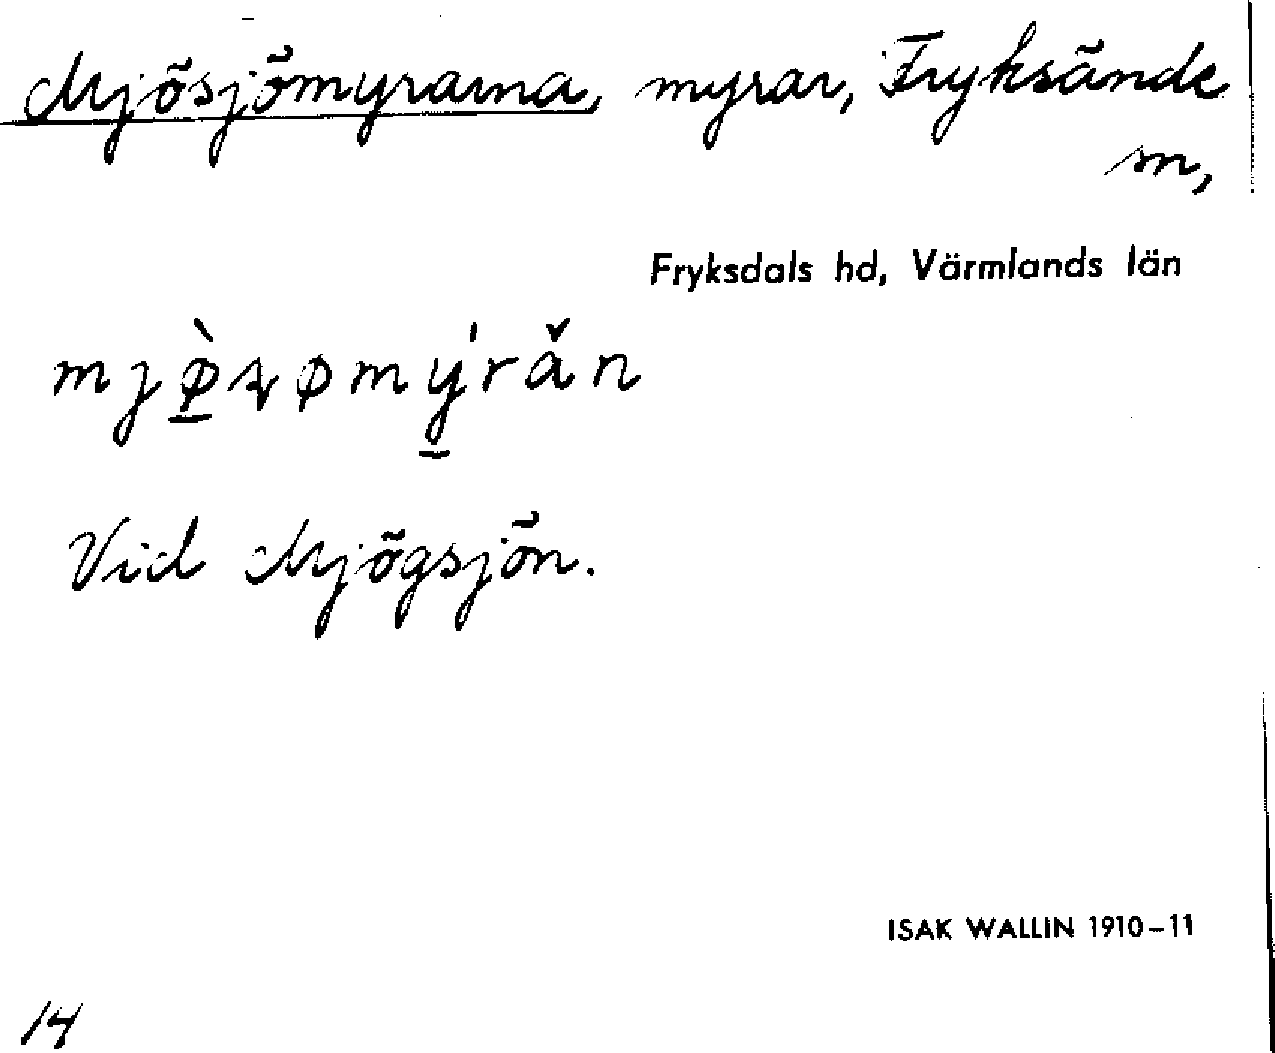 Mjösjömyrarna, myrar, Fryksände
sn,
Fryksdals hd, Värmlands län
Vid Mjögsjön.
ISAK WALLIN 1910–11
14